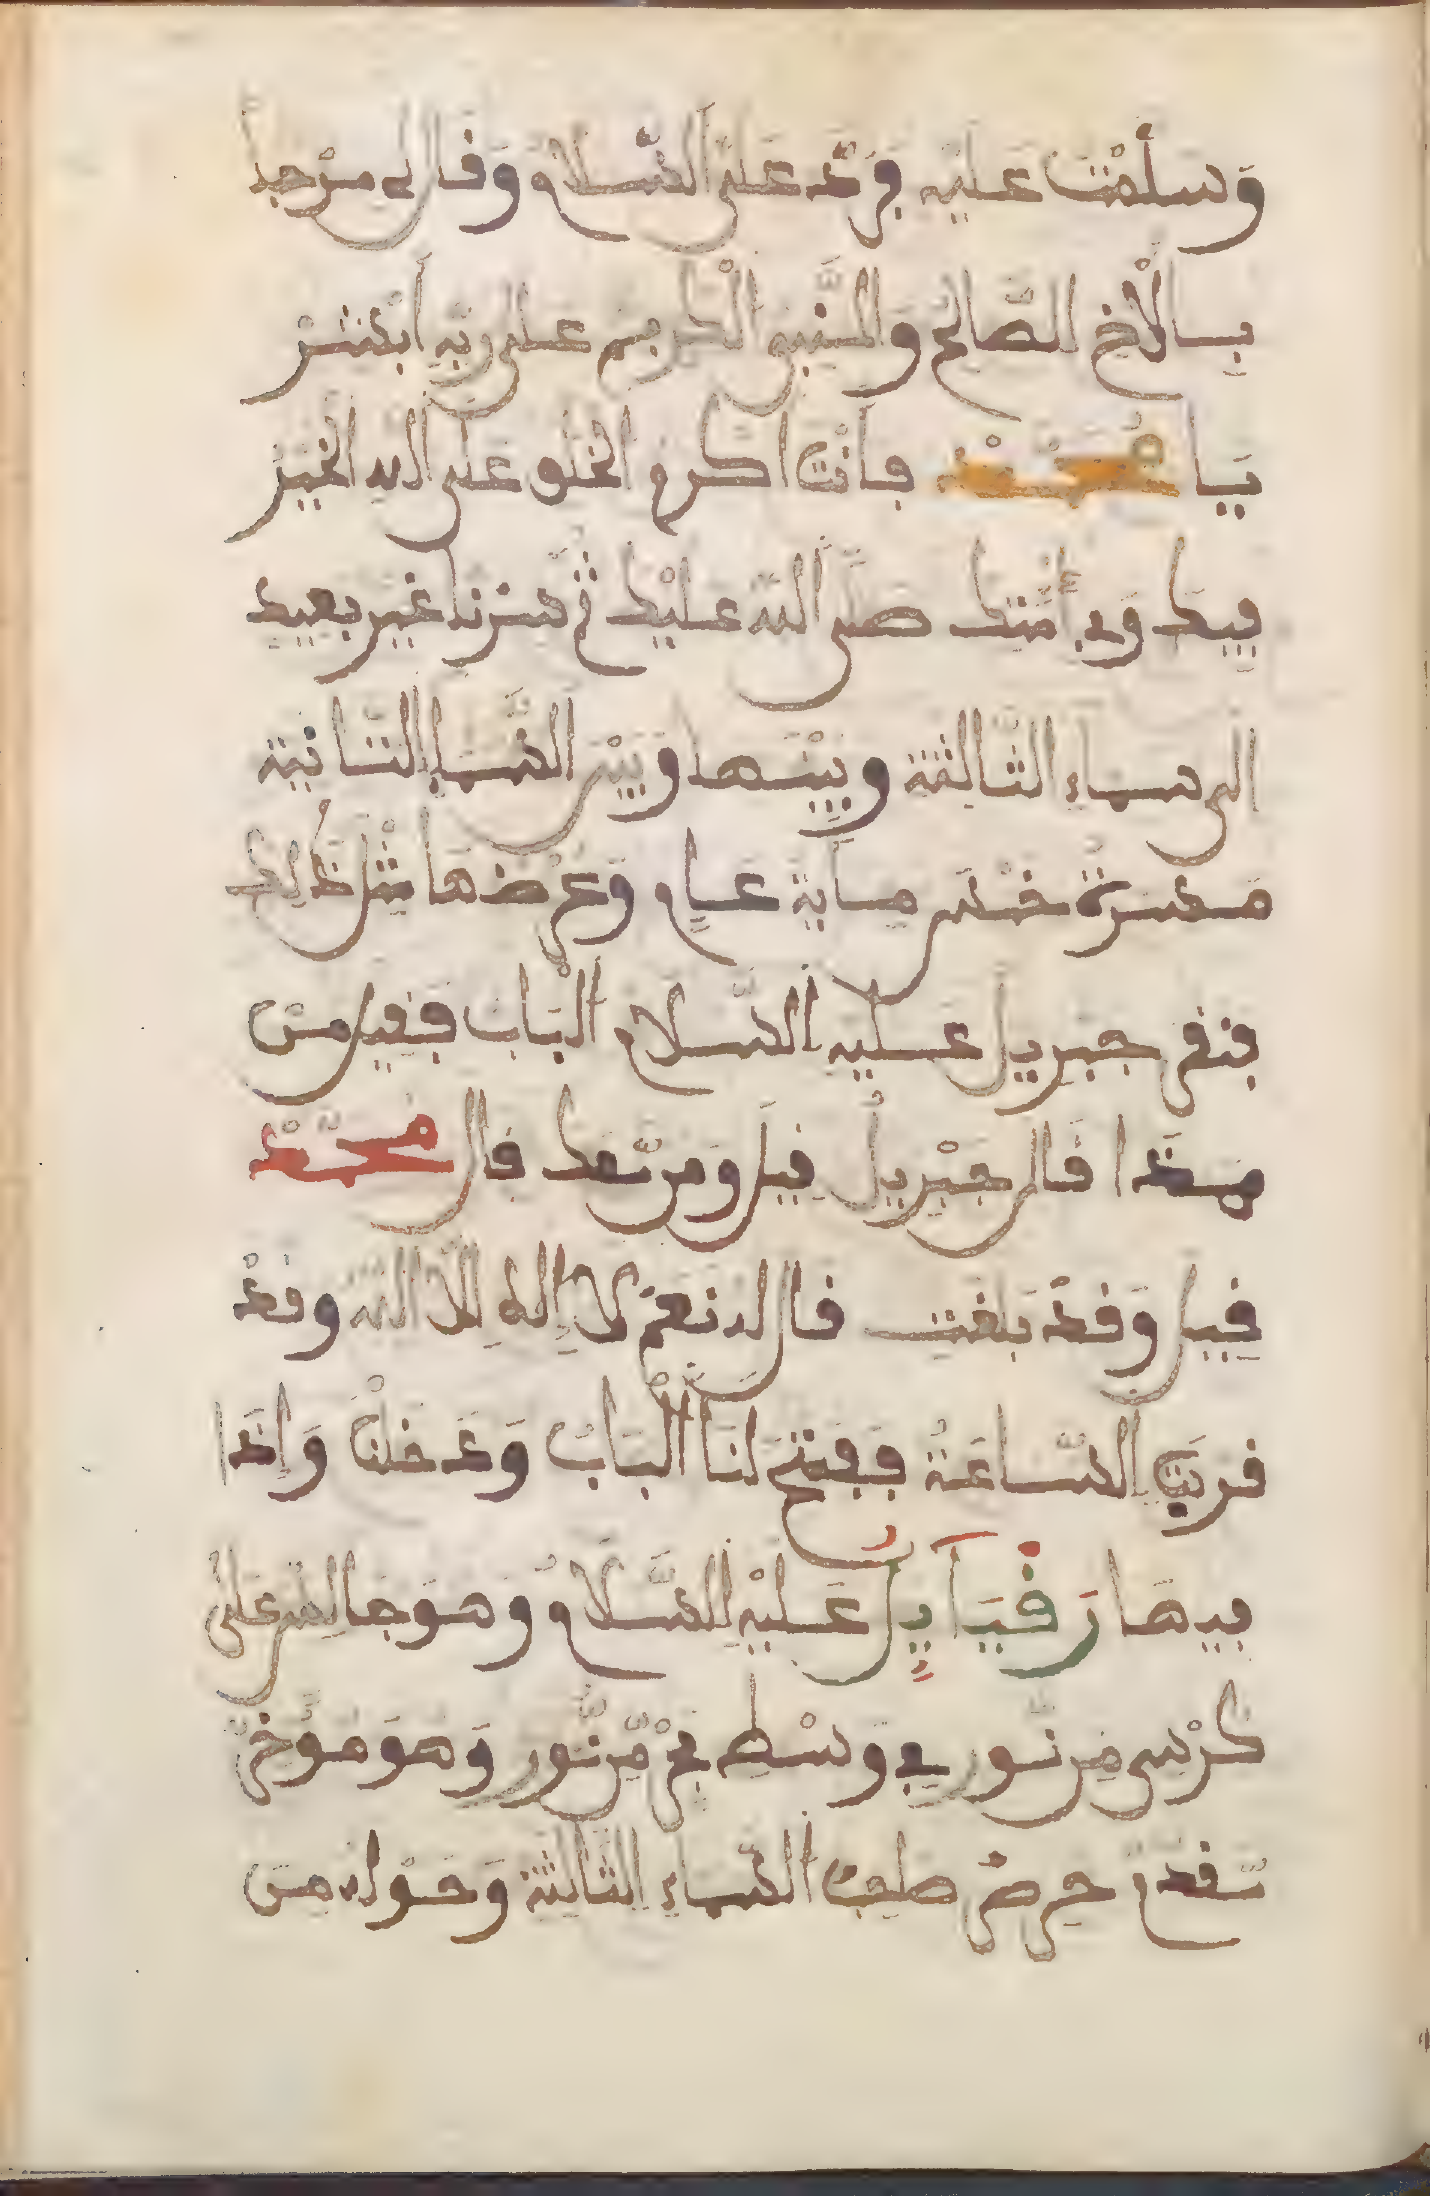 وَسلمْتُ عَليْه فرَدّ عَليّ السّلام وَقال لي مرْحبا
بالأخ الصّالح وَالنّبيّ الْكريم على ربّه أبْشرْ
يَا مُحَمّد فأنْتَ اكرم الخلق على الله الخيْر
فيك وَفي أمّتك صَلّى اللّه عليْك ثم سرْنا غيْر بعيد
الى سماء الثّالثة وبيْنَها وَبيْن السّماء الثّانية
مسيرة خمْس ماية عام وَعرْضها مثْل ذَلك
فنقر جبريل عليه السّلام الْبَاب فقيل من
هذَا قال جبْريل قيل ومن مّعك قال مُحمّدْ
قيل وَقدْ بلغت قال له نعمْ لا إله إلّا اللّه وقدْ
قربت السّاعَةُ ففتح لنَا الْبَابُ وَدَخلْنَا وَإذَا
فيهَا رَقيَآيِلُ عَليْه السّلَامُ وَهوَ جَالس عَلى
كرْسي من نّور في وَسْط بحْر مّن نّور وَهوَ مؤخّر
مّقدم حرصٌ طيب السّماء الثّالثة وَحوْله من